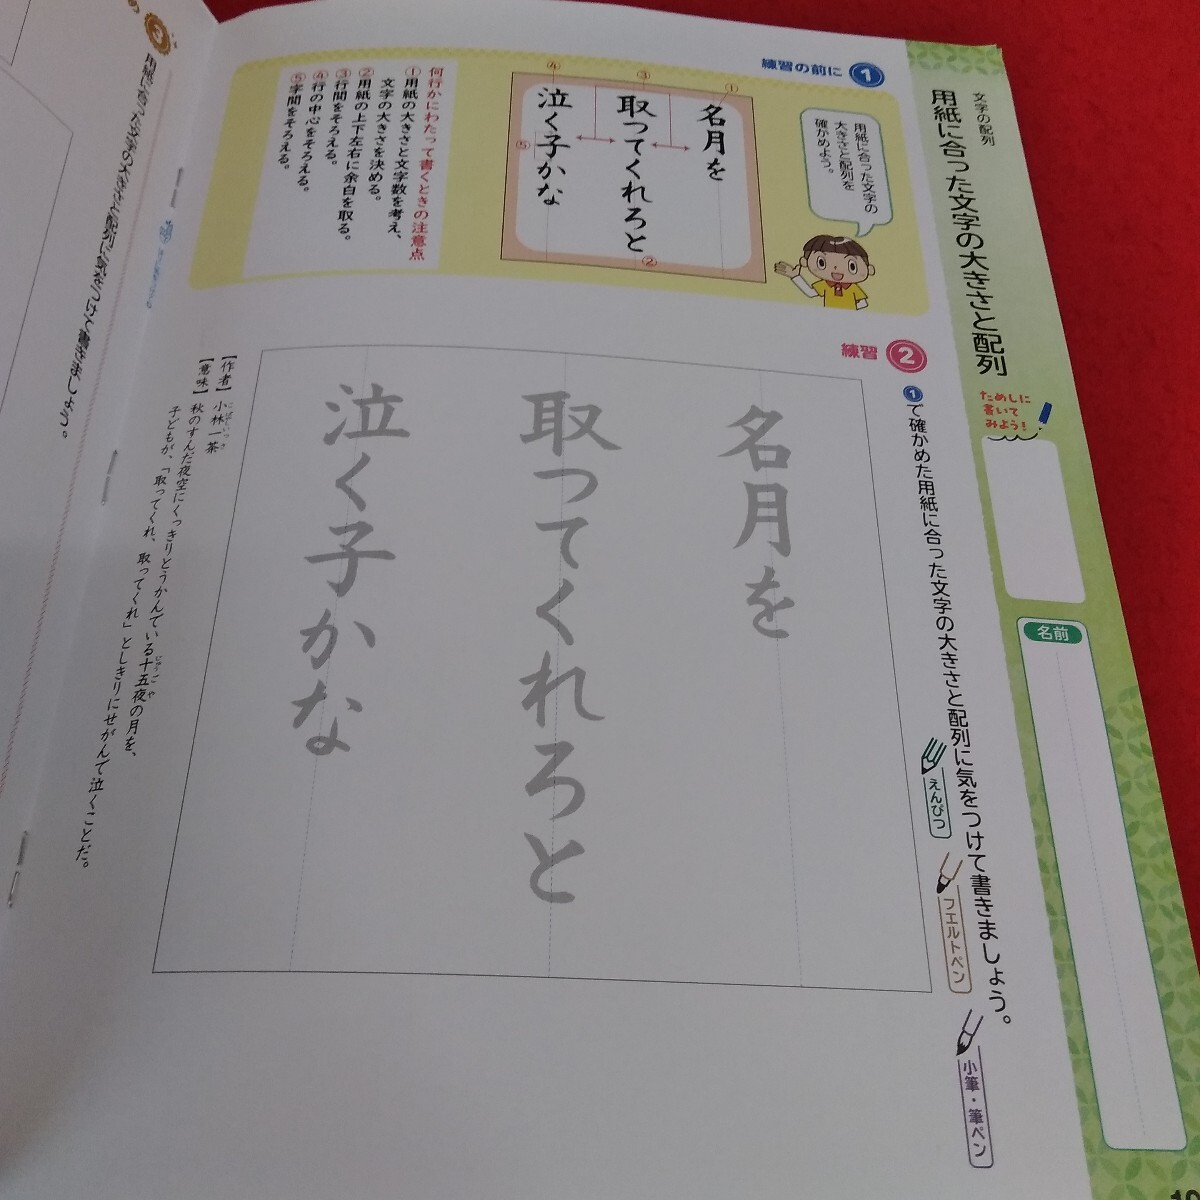 文字の配列
用紙に合った文字の大きさと配列
ためしに
書いて
みよう！
名前
練習の前に 1
用紙に合った文字の
大きさと配列を
確かめよう。
①
名月を
③
取ってくれろと
②
④
泣く子かな
⑤
何行かにわたって書くときの注意点
①用紙の大きさと文字数を考え、
文字の大きさを決める。
②用紙の上下左右に余白を取る。
③行間をそろえる。
④行の中心をそろえる。
⑤字間をそろえる。
練習 2
1で確かめた用紙に合った文字の大きさと配列に気をつけて書きましょう。
えんぴつ
フエルトペン
小筆・筆ペン
名月を
取ってくれろと
泣く子かな
【作者】小林一茶
こばやしいっさ
【意味】秋のすんだ夜空にくっきりとうかんでいる十五夜の月を、
じゅうごや
子どもが、「取ってくれ、取ってくれ」としきりにせがんで泣くことだ。
3
用紙に合った文字の大きさと配列に気をつけて書きましょう。